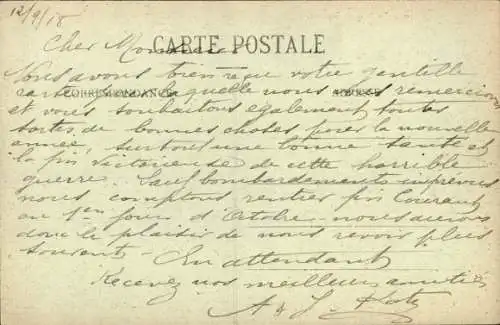 12/9/18
Cher Monsieur
CARTE POSTALE
Nous avons bien reçu votre gentille
CORRESPONDANCE
ADRESSE
carte pour laquelle nous vous remercions
et vous souhaitons également toutes
sortes de bonnes choses pour la nouvelle
année, surtout une bonne santé et
la fin victorieuse de cette horrible
guerre. Sauf bombardements imprévus
nous comptons rentrer fin courant
ou 1er jours d'Octobre. nous aurons
donc le plaisir de nous revoir plus
souvent. En attendant
Recevez nos meilleures amitiés
A & J.